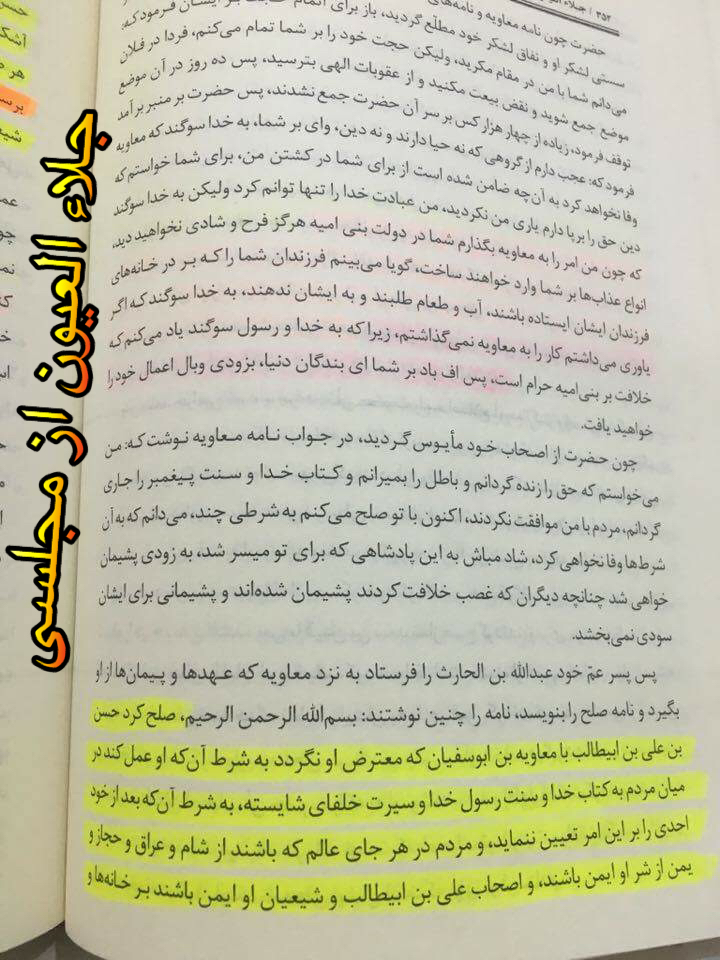 ۳۵۲ / جلاء
حضرت چون نامه معاویه و نامه‌های
سستی لشکر او و نفاق لشکر خود مطلع گردید، باز برای اتمام ایشان فرمود که:
می‌دانم شما با من در مقام مکرید، ولیکن حجت خود را بر شما تمام می‌کنم، فردا در فلان
موضع جمع شوید و نقض بیعت مکنید و از عقوبات الهی بترسید، پس ده روز در آن موضع
توقف فرمود، زیاده از چهار هزار کس بر سر آن حضرت جمع نشدند، پس حضرت بر منبر برآمد
فرمود که: عجب دارم از گروهی که نه حیا دارند و نه دین، وای بر شما، به خدا سوگند که معاویه
وفا نخواهد کرد به آن چه ضامن شده است از برای شما در کشتن من، برای شما خواستم که
دین حق را برپا دارم یاری من نکردید، من عبادت خدا را تنها توانم کرد ولیکن به خدا سوگند
که چون من امر را به معاویه بگذارم شما در دولت بنی امیه هرگز فرح و شادی نخواهید دید،
انواع عذاب‌ها بر شما وارد خواهند ساخت، گویا می‌بینم فرزندان شما را که بر در خانه‌های
فرزندان ایشان ایستاده باشند، آب و طعام طلبند و به ایشان ندهند، به خدا سوگند که اگر
یاوری می‌داشتم کار را به معاویه نمی‌گذاشتم، زیرا که به خدا و رسول سوگند یاد می‌کنم که
خلافت بر بنی‌امیه حرام است، پس اف باد بر شما ای بندگان دنیا، بزودی وبال اعمال خود را
خواهید یافت.
چون حضرت از اصحاب خود مأیوس گردید، در جواب نامه معاویه نوشت که: من
می‌خواستم که حق را زنده گردانم و باطل را بمیرانم و کتاب خدا و سنت پیغمبر را جاری
گردانم، مردم با من موافقت نکردند، اکنون با تو صلح می‌کنم به شرطی چند، می‌دانم که به آن
شرط‌ها وفا نخواهی کرد، شاد مباش به این پادشاهی که برای تو میسر شد، به زودی پشیمان
خواهی شد چنانچه دیگران که غصب خلافت کردند پشیمان شده‌اند و پشیمانی برای ایشان
سودی نمی‌بخشد.
پس پسر عمّ خود عبدالله بن الحارث را فرستاد به نزد معاویه که عهدها و پیمان‌ها از او
بگیرد و نامه صلح را بنویسد، نامه را چنین نوشتند: بسم‌الله الرحمن الرحیم، صلح کرد حسن
بن علی بن ابیطالب با معاویه بن ابوسفیان که معترض او نگردد به شرط آن‌که او عمل کند در
میان مردم به کتاب خدا و سنت رسول خدا و سیرت خلفای شایسته، به شرط آن‌که بعد از خود
احدی را بر این امر تعیین ننماید، و مردم در هر جای عالم که باشند از شام و عراق و حجاز و
یمن از شر او ایمن باشند، و اصحاب علی بن ابیطالب و شیعیان او ایمن باشند بر خانه‌ها و
جلاء العیون از مجلسی